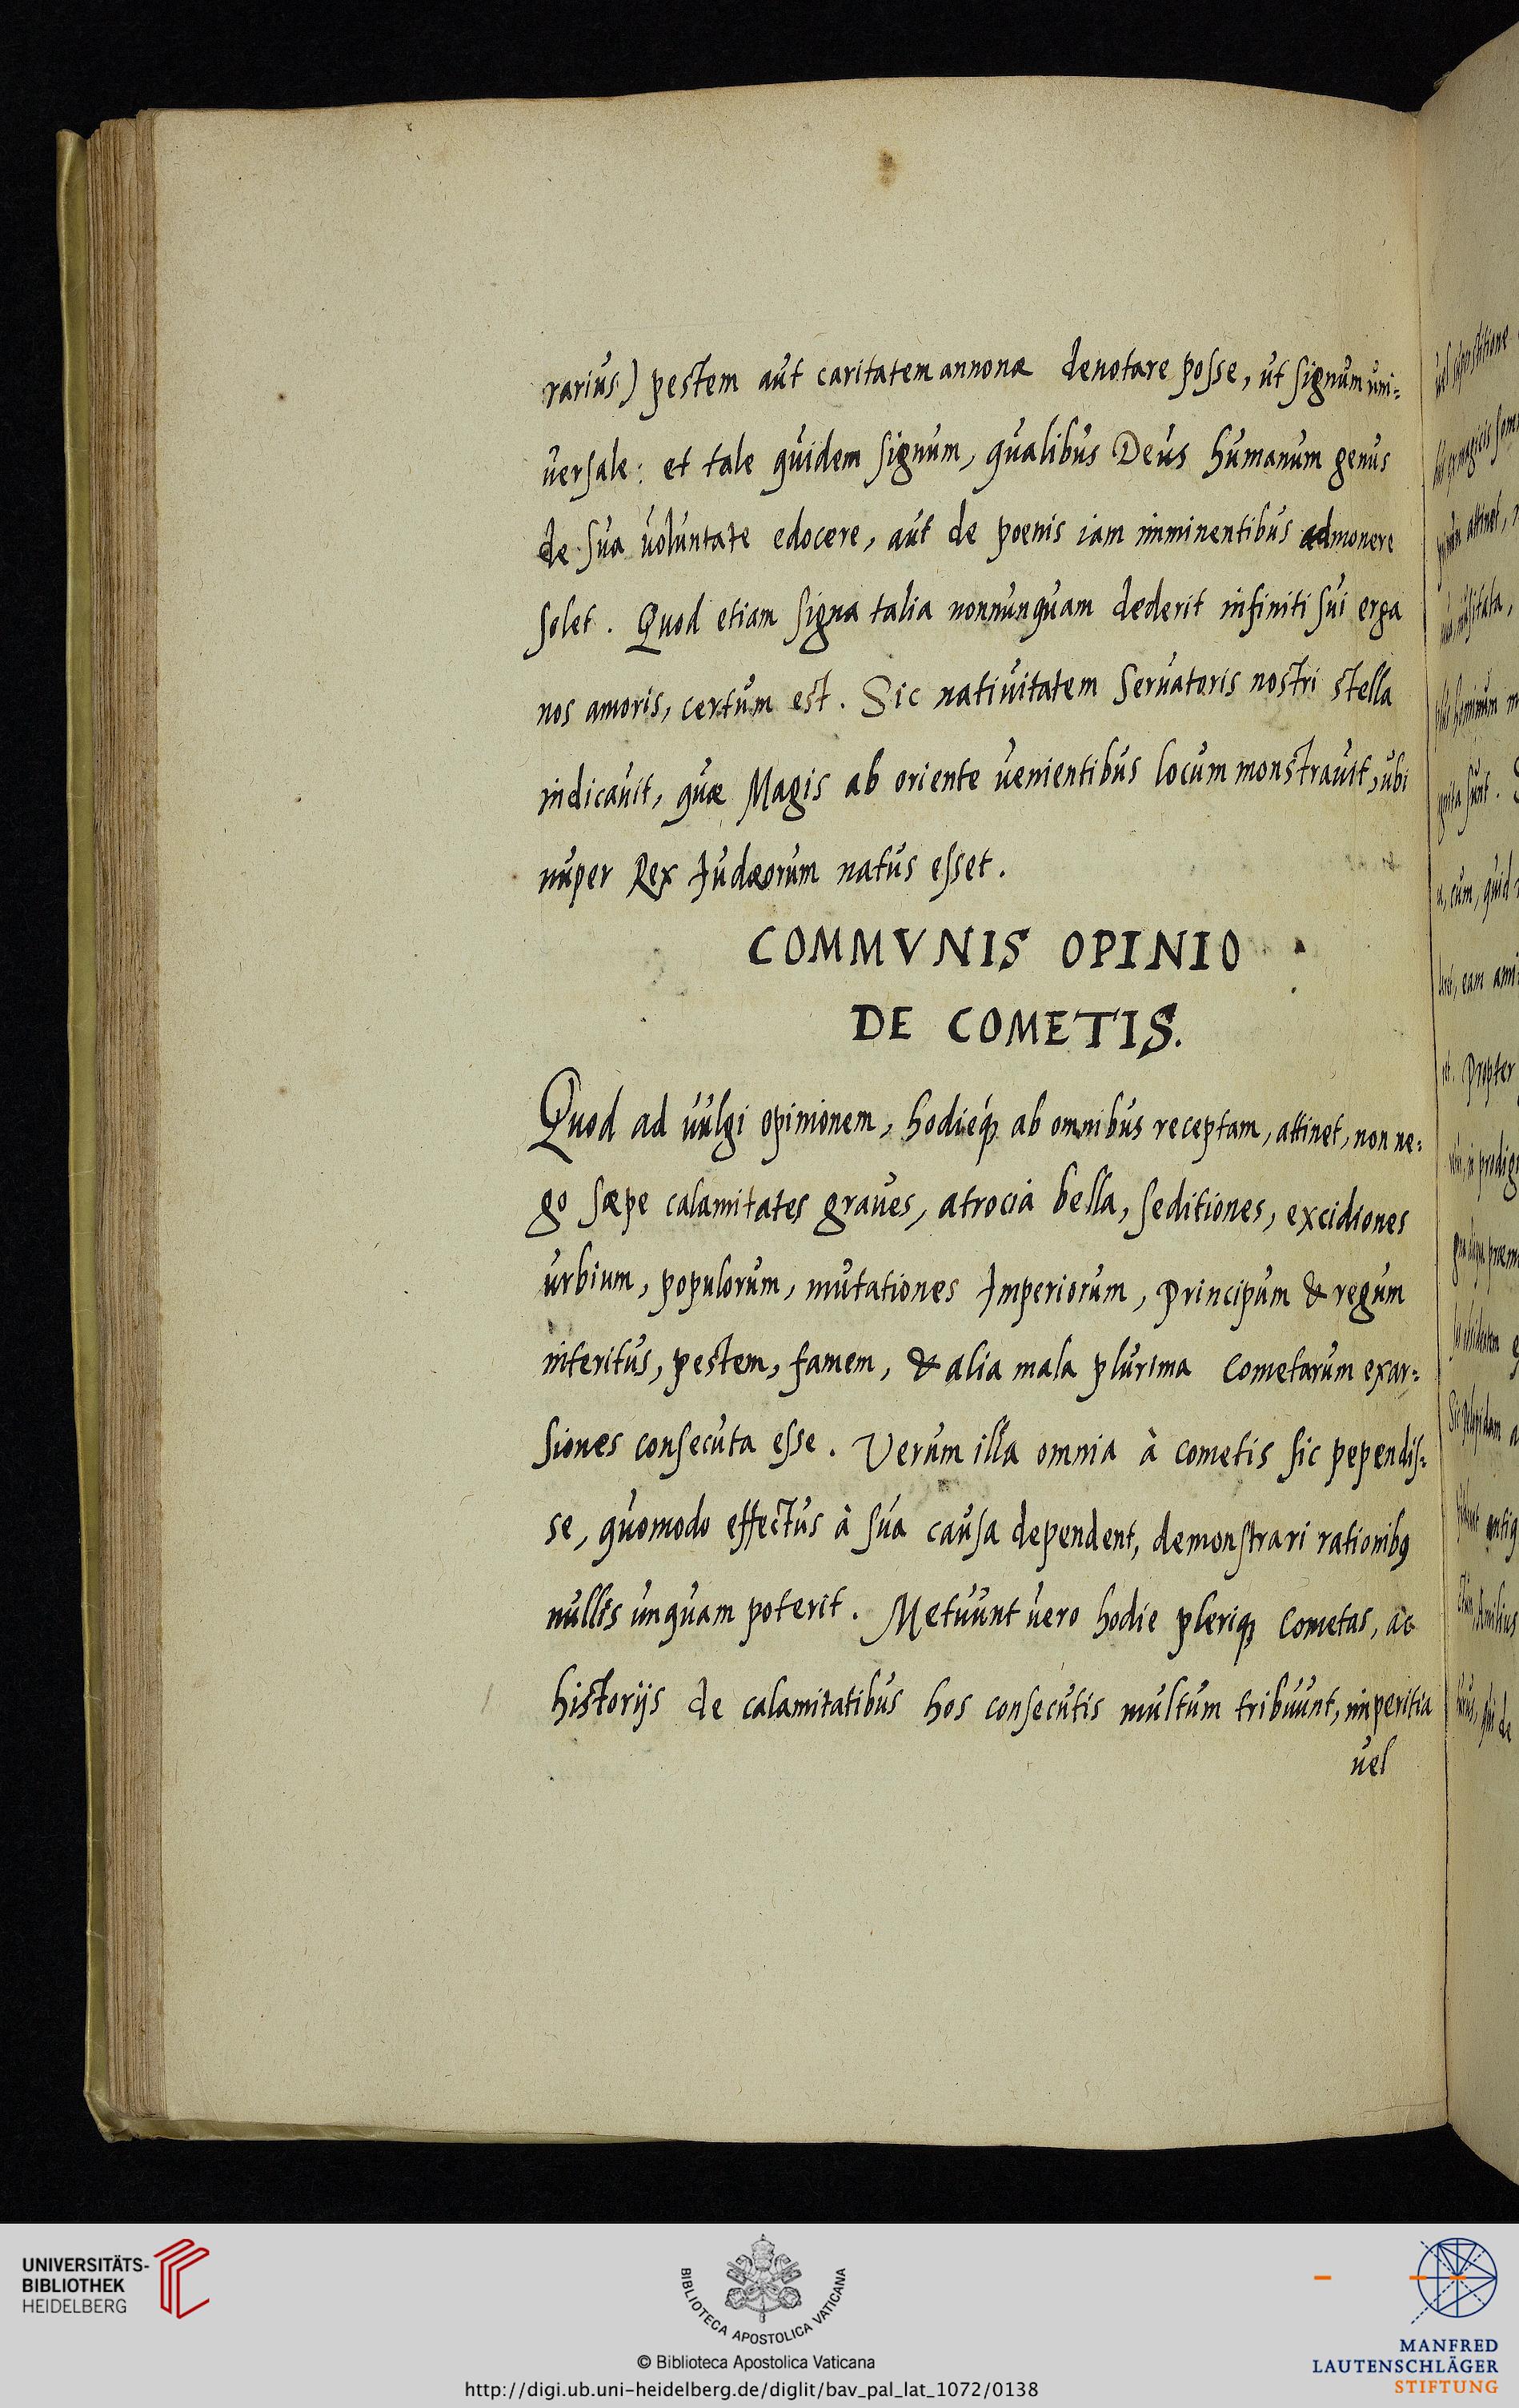 rarius) pestem aut caritatem annonæ denotare posse, ut signum uni-
versale: et tale quidem signum, qualibus Deus humanum genus
de sua voluntate edocere, aut de poenis iam imminentibus admonere
solet. Quod etiam signa talia nonnunquam dederit infiniti sui erga
nos amoris, certum est. Sic nativitatem Servatoris nostri stella
indicavit, quæ Magis ab oriente venientibus locum monstravit, ubi
nuper Rex Judæorum natus esset.
COMMVNIS OPINIO
DE COMETIS.
Quod ad vulgi opinionem, hodieq́ꝫ ab omnibus receptam, attinet, non ne-
go sæpe calamitates graves, atrocia bella, seditiones, excidiones
urbium, populorum, mutationes Imperiorum, Principum & regum
interitus, pestem, famem, & alia mala plurima Cometarum exar-
siones consecuta esse. Verum illa omnia à cometis sic pependis-
se, quomodo effectus à sua causa dependent, demonstrari rationibꝰ
nullis unquam poterit. Metuunt vero hodie pleriqꝫ Cometas, ac
historijs de calamitatibus hos consecutis multum tribuunt, imperitia
vel
propter
UNIVERSITÄTS-
BIBLIOTHEK
HEIDELBERG
BIBLIOTECA APOSTOLICA VATICANA
© Biblioteca Apostolica Vaticana
http://digi.ub.uni-heidelberg.de/diglit/bav_pal_lat_1072/0138
MANFRED
LAUTENSCHLÄGER
STIFTUNG